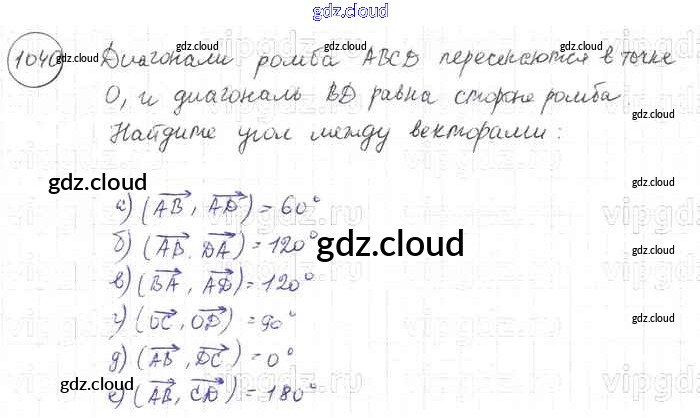 gdz.cloud
1040 Диагонали ромба ABCD пересекаются в точке
O, и диагональ BD равна стороне ромба.
Найдите угол между векторами:
а) (AB, AD) = 60°
б) (AB, DA) = 120°
в) (BA, AD) = 120°
г) (OC, OD) = 90°
д) (AB, DC) = 0°
е) (AB, CD) = 180°
gdz.cloud
gdz.cloud
gdz.cloud
gdz.cloud
gdz.cloud
gdz.cloud
gdz.cloud
gdz.cloud
gdz.cloud
gdz.cloud
vipgdz.ru